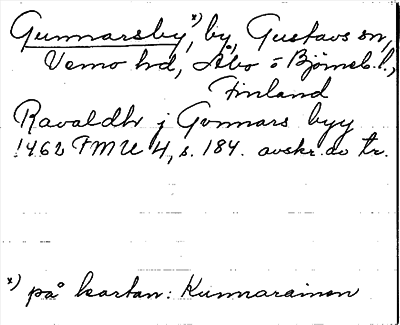 Gunnarsby*), by, Gustavs sn,
Vemo hd, Åbo o Björneb. l.,
Finland
Ravaldh j Gonnars byy
1462 FMU 4, s. 184. avskr. av tr.
*) på kartan: Kunnarainen